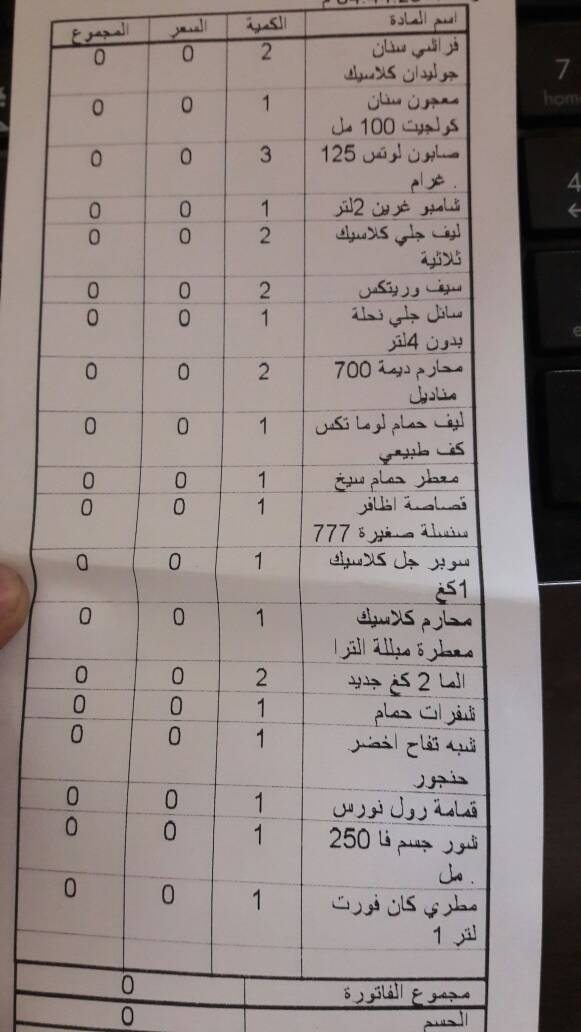 اسم المادة الكمية السعر المجموع
فراشي سنان 2 0 0
جوليدان كلاسيك
معجون سنان 1 0 0
كولجيت 100 مل
صابون لوتس 125 3 0 0
غرام .
شامبو غرين 2لتر 1 0 0
ليف جلي كلاسيك 2 0 0
ثلاثية
سيف وريتكس 2 0 0
سائل جلي نحلة 1 0 0
بدون 4لتر
محارم ديمة 700 2 0 0
مناديل
ليف حمام لوما تكس 1 0 0
كف طبيعي
معطر حمام سيخ 1 0 0
قصاصة اظافر 1 0 0
سنسلة صغيرة 777
سوبر جل كلاسيك 1 0 0
1كغ
محارم كلاسيك 1 0 0
معطرة مبللة الترا
الما 2 كغ جديد 2 0 0
شفرات حمام 1 0 0
شبه تفاح اخضر 1 0 0
حنجور
قمامة رول نورس 1 0 0
شور جسم فا 250 1 0 0
مل .
مطري كان فورت 1 0 0
لتر 1
مجموع الفاتورة 0
الحسم 0
7
home
4